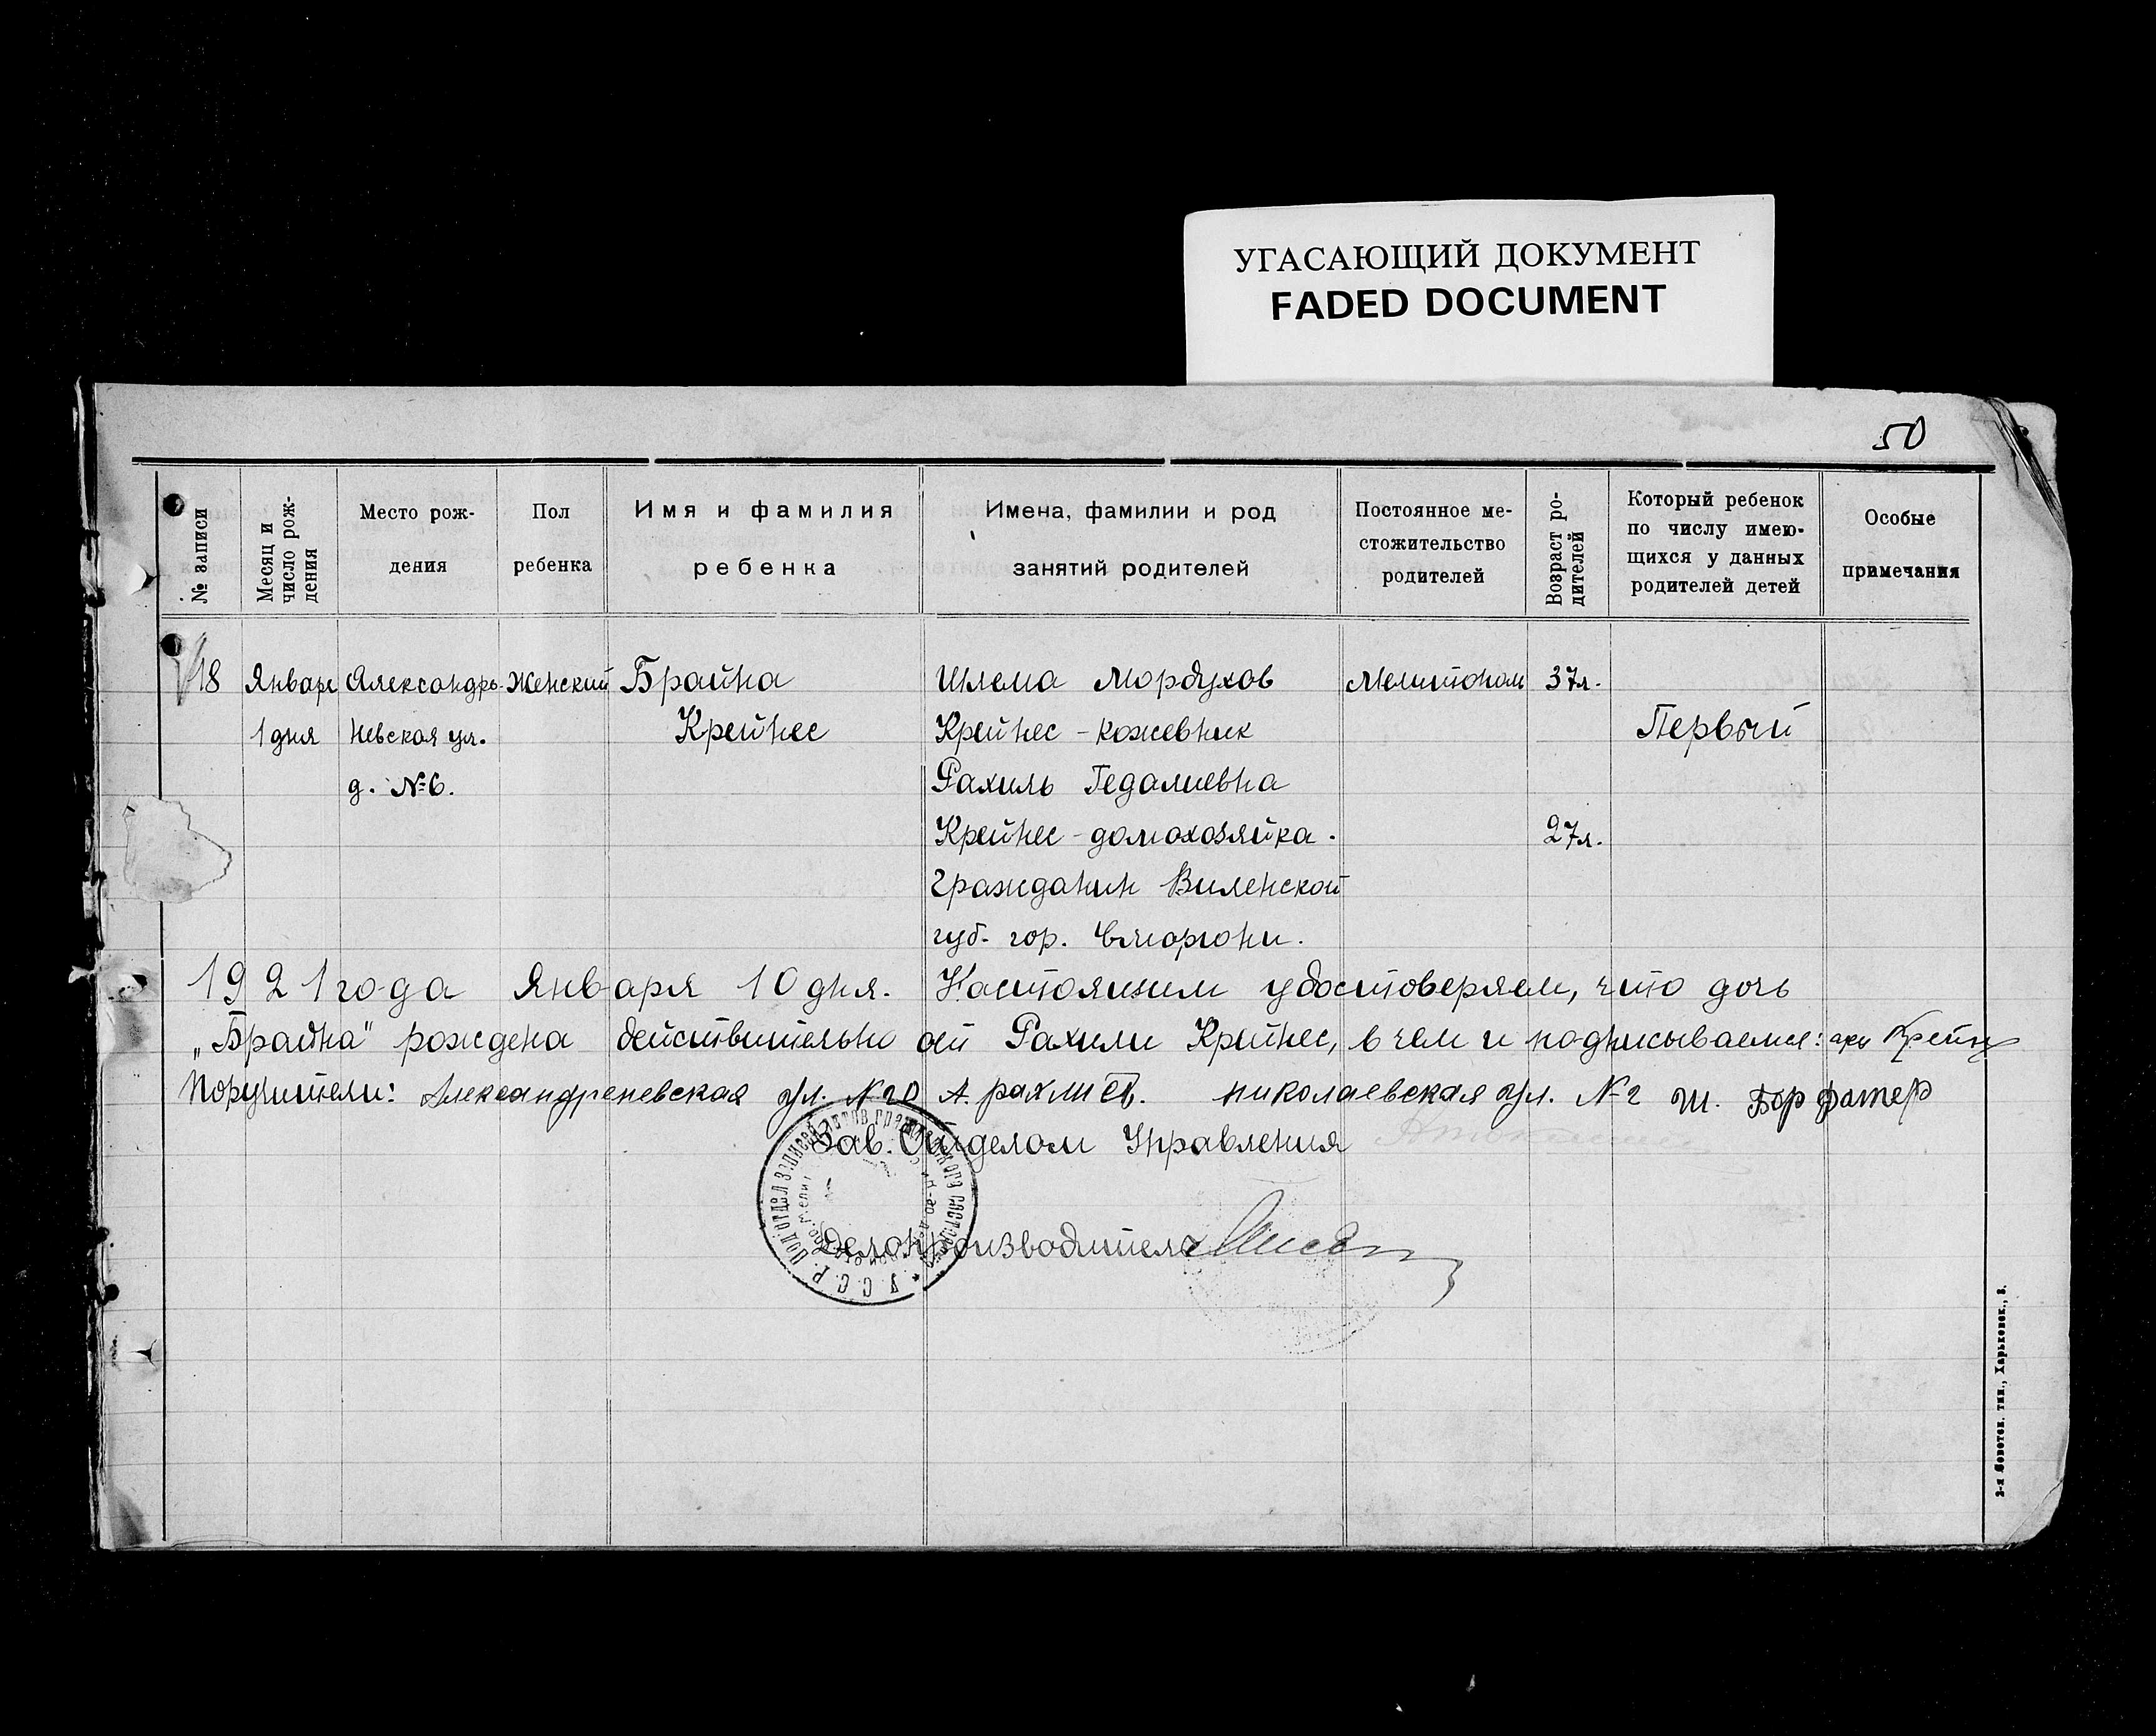 УГАСАЮЩИЙ ДОКУМЕНТ
FADED DOCUMENT
50
№ записи
Месяц и число рож-дения
Место рож-дения
Пол ребенка
Имя и фамилия ребенка
Имена, фамилии и род занятий родителей
Постоянное ме-стожительство родителей
Возраст ро-дителей
Который ребенок по числу имею-щихся у данных родителей детей
Особые примечания
18 Января Александро- Женский Брайна Шлема Мордухов Мелитополь 37л.
1 дня Невская ул. Крейнес Крейнес - кожевник Первый
д. №6. Рахиль Гедалиевна
Крейнес - домохозяйка. 27л.
Гражданин Виленской
губ. гор. Сморгони.
1921 года Января 10 дня. Настоящим удостоверяем, что дочь
„Брайна" рождена действительно от Рахили Крейнес, в чем и подписываемся:
Поручители: Александреневская ул. №20 А. николаевская ул. №2 Ш.
Зав. Отделом Управления
Делопроизводитель
У.С.С.Р. Подотдел записей актов гражданского состояния
2-я типн., Харьковск., 3.